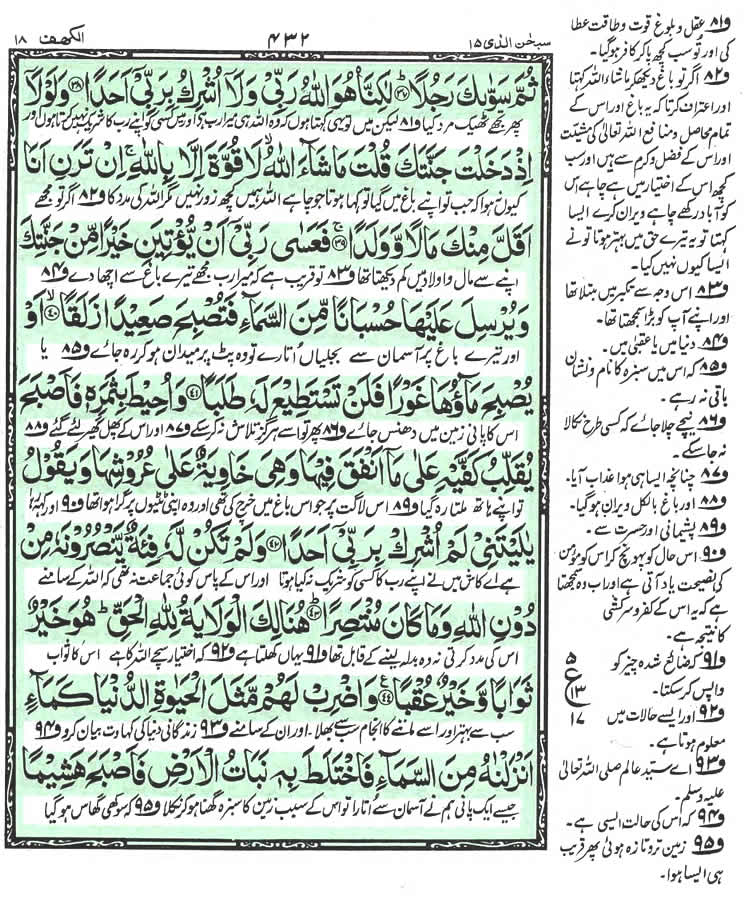 سبحٰن الذی ۱۵
۴۳۲
الکهف ۱۸
ثُمَّ سَوّٰىكَ رَجُلًا ﴿۳۷﴾ لٰكِنَّا۠ هُوَ اللّٰهُ رَبِّیْ وَلَاۤ اُشْرِكُ بِرَبِّیْۤ اَحَدًا ﴿۳۸﴾ وَلَوْلَاۤ
پھر تجھے ٹھیک مرد کیا و۸۱ لیکن میں تو یہی کہتا ہوں کہ وہ اللہ ہی میرا رب ہے اور میں کسی کو اپنے رب کا شریک نہیں کرتا ہوں اور
اِذْ دَخَلْتَ جَنَّتَكَ قُلْتَ مَا شَآءَ اللّٰهُ ۙ لَا قُوَّةَ اِلَّا بِاللّٰهِ ۚ اِنْ تَرَنِ اَنَا
کیوں نہ ہوا کہ جب تو اپنے باغ میں گیا تو کہا ہوتا جو چاہے اللہ ہمیں کچھ زور نہیں مگر اللہ کی مدد کا و۸۲ اگر تو مجھے
اَقَلَّ مِنْكَ مَالًا وَّوَلَدًا ﴿۳۹﴾ۚ فَعَسٰى رَبِّیْۤ اَنْ یُّؤْتِیَنِ خَیْرًا مِّنْ جَنَّتِكَ
اپنے سے مال و اولاد میں کم دیکھتا تھا و۸۳ تو قریب ہے کہ میرا رب مجھے تیرے باغ سے اچھا دے و۸۴
وَیُرْسِلَ عَلَیْهَا حُسْبَانًا مِّنَ السَّمَآءِ فَتُصْبِحَ صَعِیْدًا زَلَقًا ﴿۴۰﴾ۙ اَوْ
اور تیرے باغ پر آسمان سے بجلیاں اُتارے تو وہ پٹ پر میدان ہو کر رہ جائے و۸۵ یا
یُصْبِحَ مَآؤُهَا غَوْرًا فَلَنْ تَسْتَطِیْعَ لَهٗ طَلَبًا ﴿۴۱﴾ وَاُحِیْطَ بِثَمَرِهٖ فَاَصْبَحَ
اس کا پانی زمین میں دھنس جائے و۸۶ پھر تو اسے ہرگز تلاش نہ کر سکے و۸۷ اور اس کے پھل گھیر لئے گئے و۸۸
یُقَلِّبُ كَفَّیْهِ عَلٰى مَاۤ اَنْفَقَ فِیْهَا وَهِیَ خَاوِیَةٌ عَلٰى عُرُوْشِهَا وَیَقُوْلُ
تو اپنے ہاتھ ملتا رہ گیا و۸۹ اس لاگت پر جو اس باغ میں خرچ کی تھی اور وہ اپنی ٹٹیوں پر گرا ہوا تھا و۹۰ اور کہہ رہا
یٰلَیْتَنِیْ لَمْ اُشْرِكْ بِرَبِّیْۤ اَحَدًا ﴿۴۲﴾ وَلَمْ تَكُنْ لَّهٗ فِئَةٌ یَّنْصُرُوْنَهٗ مِنْ
ہے اے کاش میں نے اپنے رب کا کسی کو شریک نہ کیا ہوتا اور اس کے پاس کوئی جماعت نہ تھی کہ اللہ کے سامنے
دُوْنِ اللّٰهِ وَمَا كَانَ مُنْتَصِرًا ﴿۴۳﴾ؕ هُنَالِكَ الْوَلَایَةُ لِلّٰهِ الْحَقِّ ؕ هُوَ خَیْرٌ
اس کی مدد کرتی نہ وہ بدلہ لینے کے قابل تھا و۹۱ یہاں کھلتا ہے و۹۲ کہ اختیار سچے اللہ کا ہے اس کا ثواب
ثَوَابًا وَّخَیْرٌ عُقْبًا ﴿۴۴﴾ۧ وَاضْرِبْ لَهُمْ مَّثَلَ الْحَیٰوةِ الدُّنْیَا كَمَآءٍ
سب سے بہتر اور اسے ماننے کا انجام سب سے بھلا ۔ اور ان کے سامنے و۹۳ زندگانی دنیا کی کہاوت بیان کرو و۹۴
اَنْزَلْنٰهُ مِنَ السَّمَآءِ فَاخْتَلَطَ بِهٖ نَبَاتُ الْاَرْضِ فَاَصْبَحَ هَشِیْمًا
جیسے ایک پانی ہم نے آسمان سے اُتارا تو اس کے سبب زمین کا سبزہ گھنا ہو کر نکلا و۹۵ کہ سوکھی گھاس ہو گیا
و۸۱ عقل و بلوغ قوت و طاقت عطا
کی اور تو سب کچھ پا کر کافر ہو گیا۔
و۸۲ اگر تو باغ دیکھ کر ماشاء اللہ کہتا
اور اعتراف کرتا کہ یہ باغ اور اس کے
تمام محاصل و منافع اللہ تعالیٰ کی مشیت
اور اس کے فضل و کرم سے ہیں اور سب
کچھ اس کے اختیار میں ہے چاہے اس
کو آباد رکھے چاہے ویران کرے ایسا
کہتا تو یہ تیرے حق میں بہتر ہوتا تو نے
ایسا کیوں نہیں کیا۔
و۸۳ اس وجہ سے تکبر میں مبتلا تھا
اور اپنے آپ کو بڑا سمجھتا تھا۔
و۸۴ دنیا میں یا عقبیٰ میں۔
و۸۵ کہ اس میں سبزہ کا نام و نشان
باقی نہ رہے۔
و۸۶ نیچے چلا جائے کہ کسی طرح نکالا
نہ جا سکے۔
و۸۷ چنانچہ ایسا ہی ہوا عذاب آیا۔
و۸۸ اور باغ بالکل ویران ہو گیا۔
و۸۹ پشیمانی اور حسرت سے۔
و۹۰ اس حال کو پہونچ کر اس کو مؤمن
کی نصیحت یاد آتی ہے اور اب وہ سمجھتا
ہے کہ یہ اس کے کفر و سرکشی
کا نتیجہ ہے۔
و۹۱ کہ ضائع شدہ چیز کو
واپس کر سکتا۔
و۹۲ اور ایسے حالات میں
معلوم ہوتا ہے۔
و۹۳ اے سید عالم صلی اللہ تعالیٰ
علیہ وسلم۔
و۹۴ کہ اس کی حالت ایسی ہے۔
و۹۵ زمین تر و تازہ ہوئی پھر قریب
ہی ایسا ہوا۔
۵
ع
۱۳
۱۷